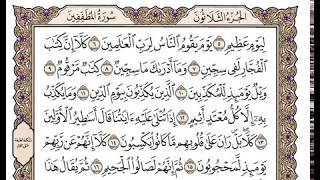 الجزء الثلاثون سورة المطففين
ليوم عظيم ٥ يوم يقوم الناس لرب العالمين ٦ كلا إن كتب
الفجار لفي سجين ٧ وما أدرىك ما سجين ٨ كتب مرقوم ٩
ويل يومئذ للمكذبين ١٠ الذين يكذبون بيوم الدين ١١ وما يكذب
به إلا كل معتد أثيم ١٢ إذا تتلى عليه ءايتنا قال أسطير الأولين
١٣ كلا بل ران على قلوبهم ما كانوا يكسبون ١٤ كلا إنهم عن ربهم
يومئذ لمحجوبون ١٥ ثم إنهم لصالوا الجحيم ١٦ ثم يقال هذا